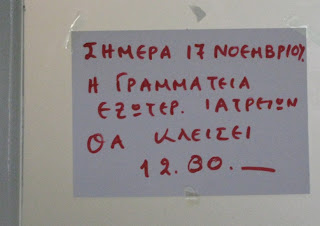 ΣΗΜΕΡΑ 17 ΝΟΕΜΒΡΙΟΥ.
Η ΓΡΑΜΜΑΤΕΙΑ
ΕΞΩΤΕΡ. ΙΑΤΡΕΙΩΝ
ΘΑ ΚΛΕΙΣΕΙ
12.30.—